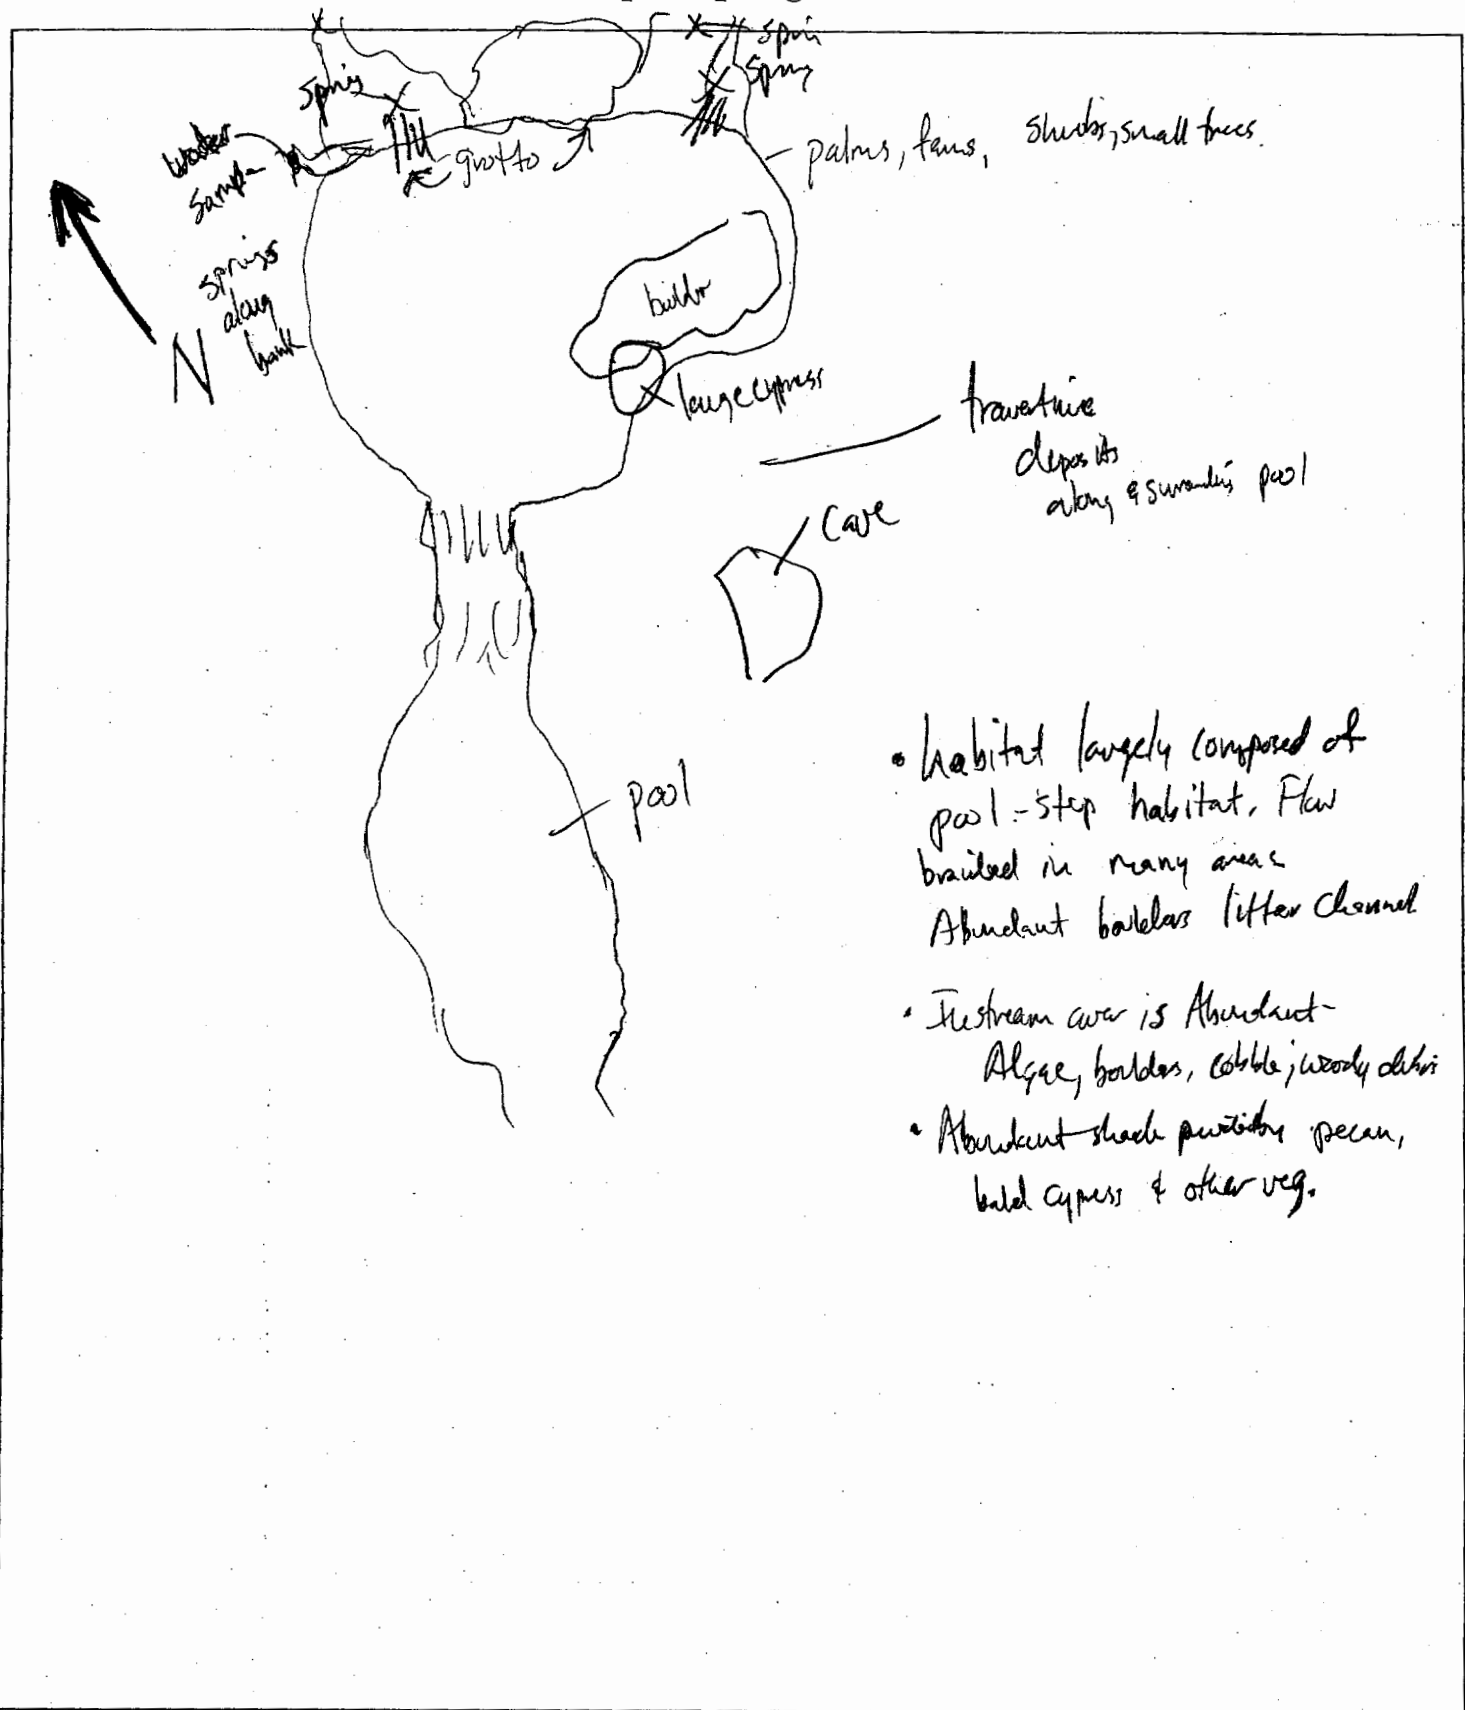 spring
spring
springs
water
sample
grotto
palms, ferns, shrubs, small trees.
N
springs
along
bank
boulder
large cypress
travertine
deposits
along & surrounding pool
cave
pool
• habitat largely composed of
pool-step habitat. Flow
braided in many areas
Abundant boulders litter channel
• Instream cover is Abundant-
Algae, boulders, cobble, woody debris
• Abundant shade provided by pecan,
bald cypress & other veg.